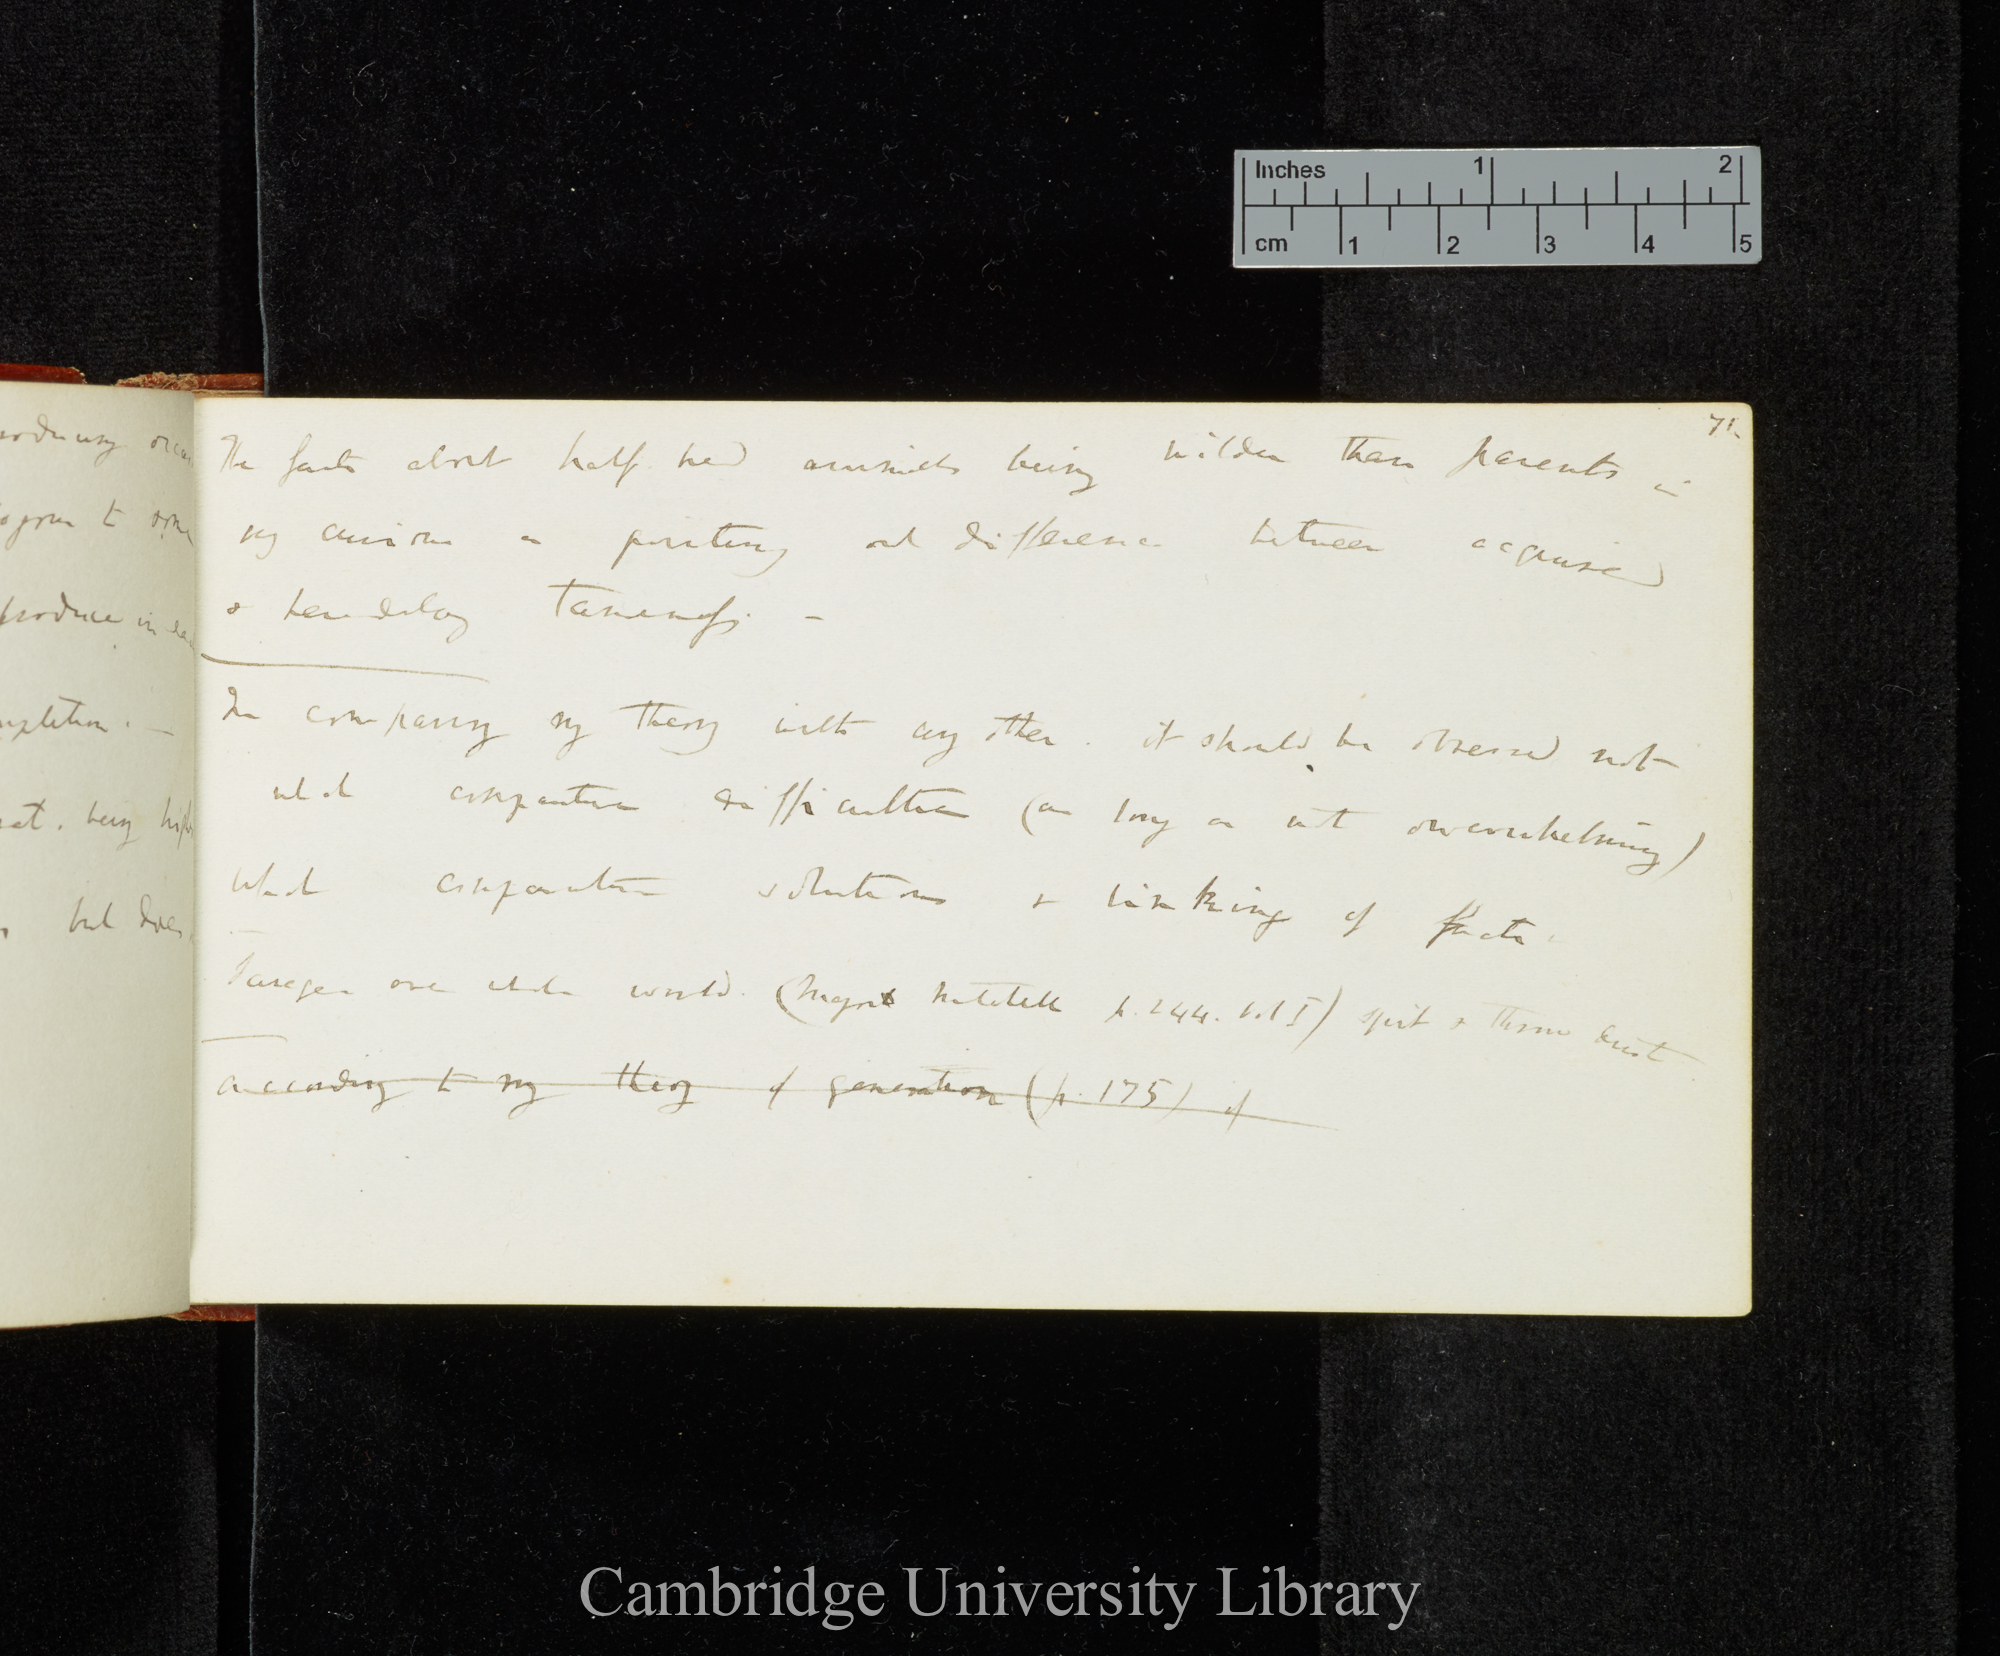 Inches 1 2
cm 1 2 3 4 5
71
The facts about half bred animals being wilder than parents is
very curious as pointing out difference between acquired
& hereditary tameness. —
In comparing my theory with any other. it should be observed not
what comparative difficulties (as long as not overwhelming)
what comparative solutions & linking of facts.
over whole world. p. 244. Vol I) spit & throw dust
according to my theory of generation (p. 175) if
oducing
to some
produce in
mpletion. —
being
but does
Cambridge University Library